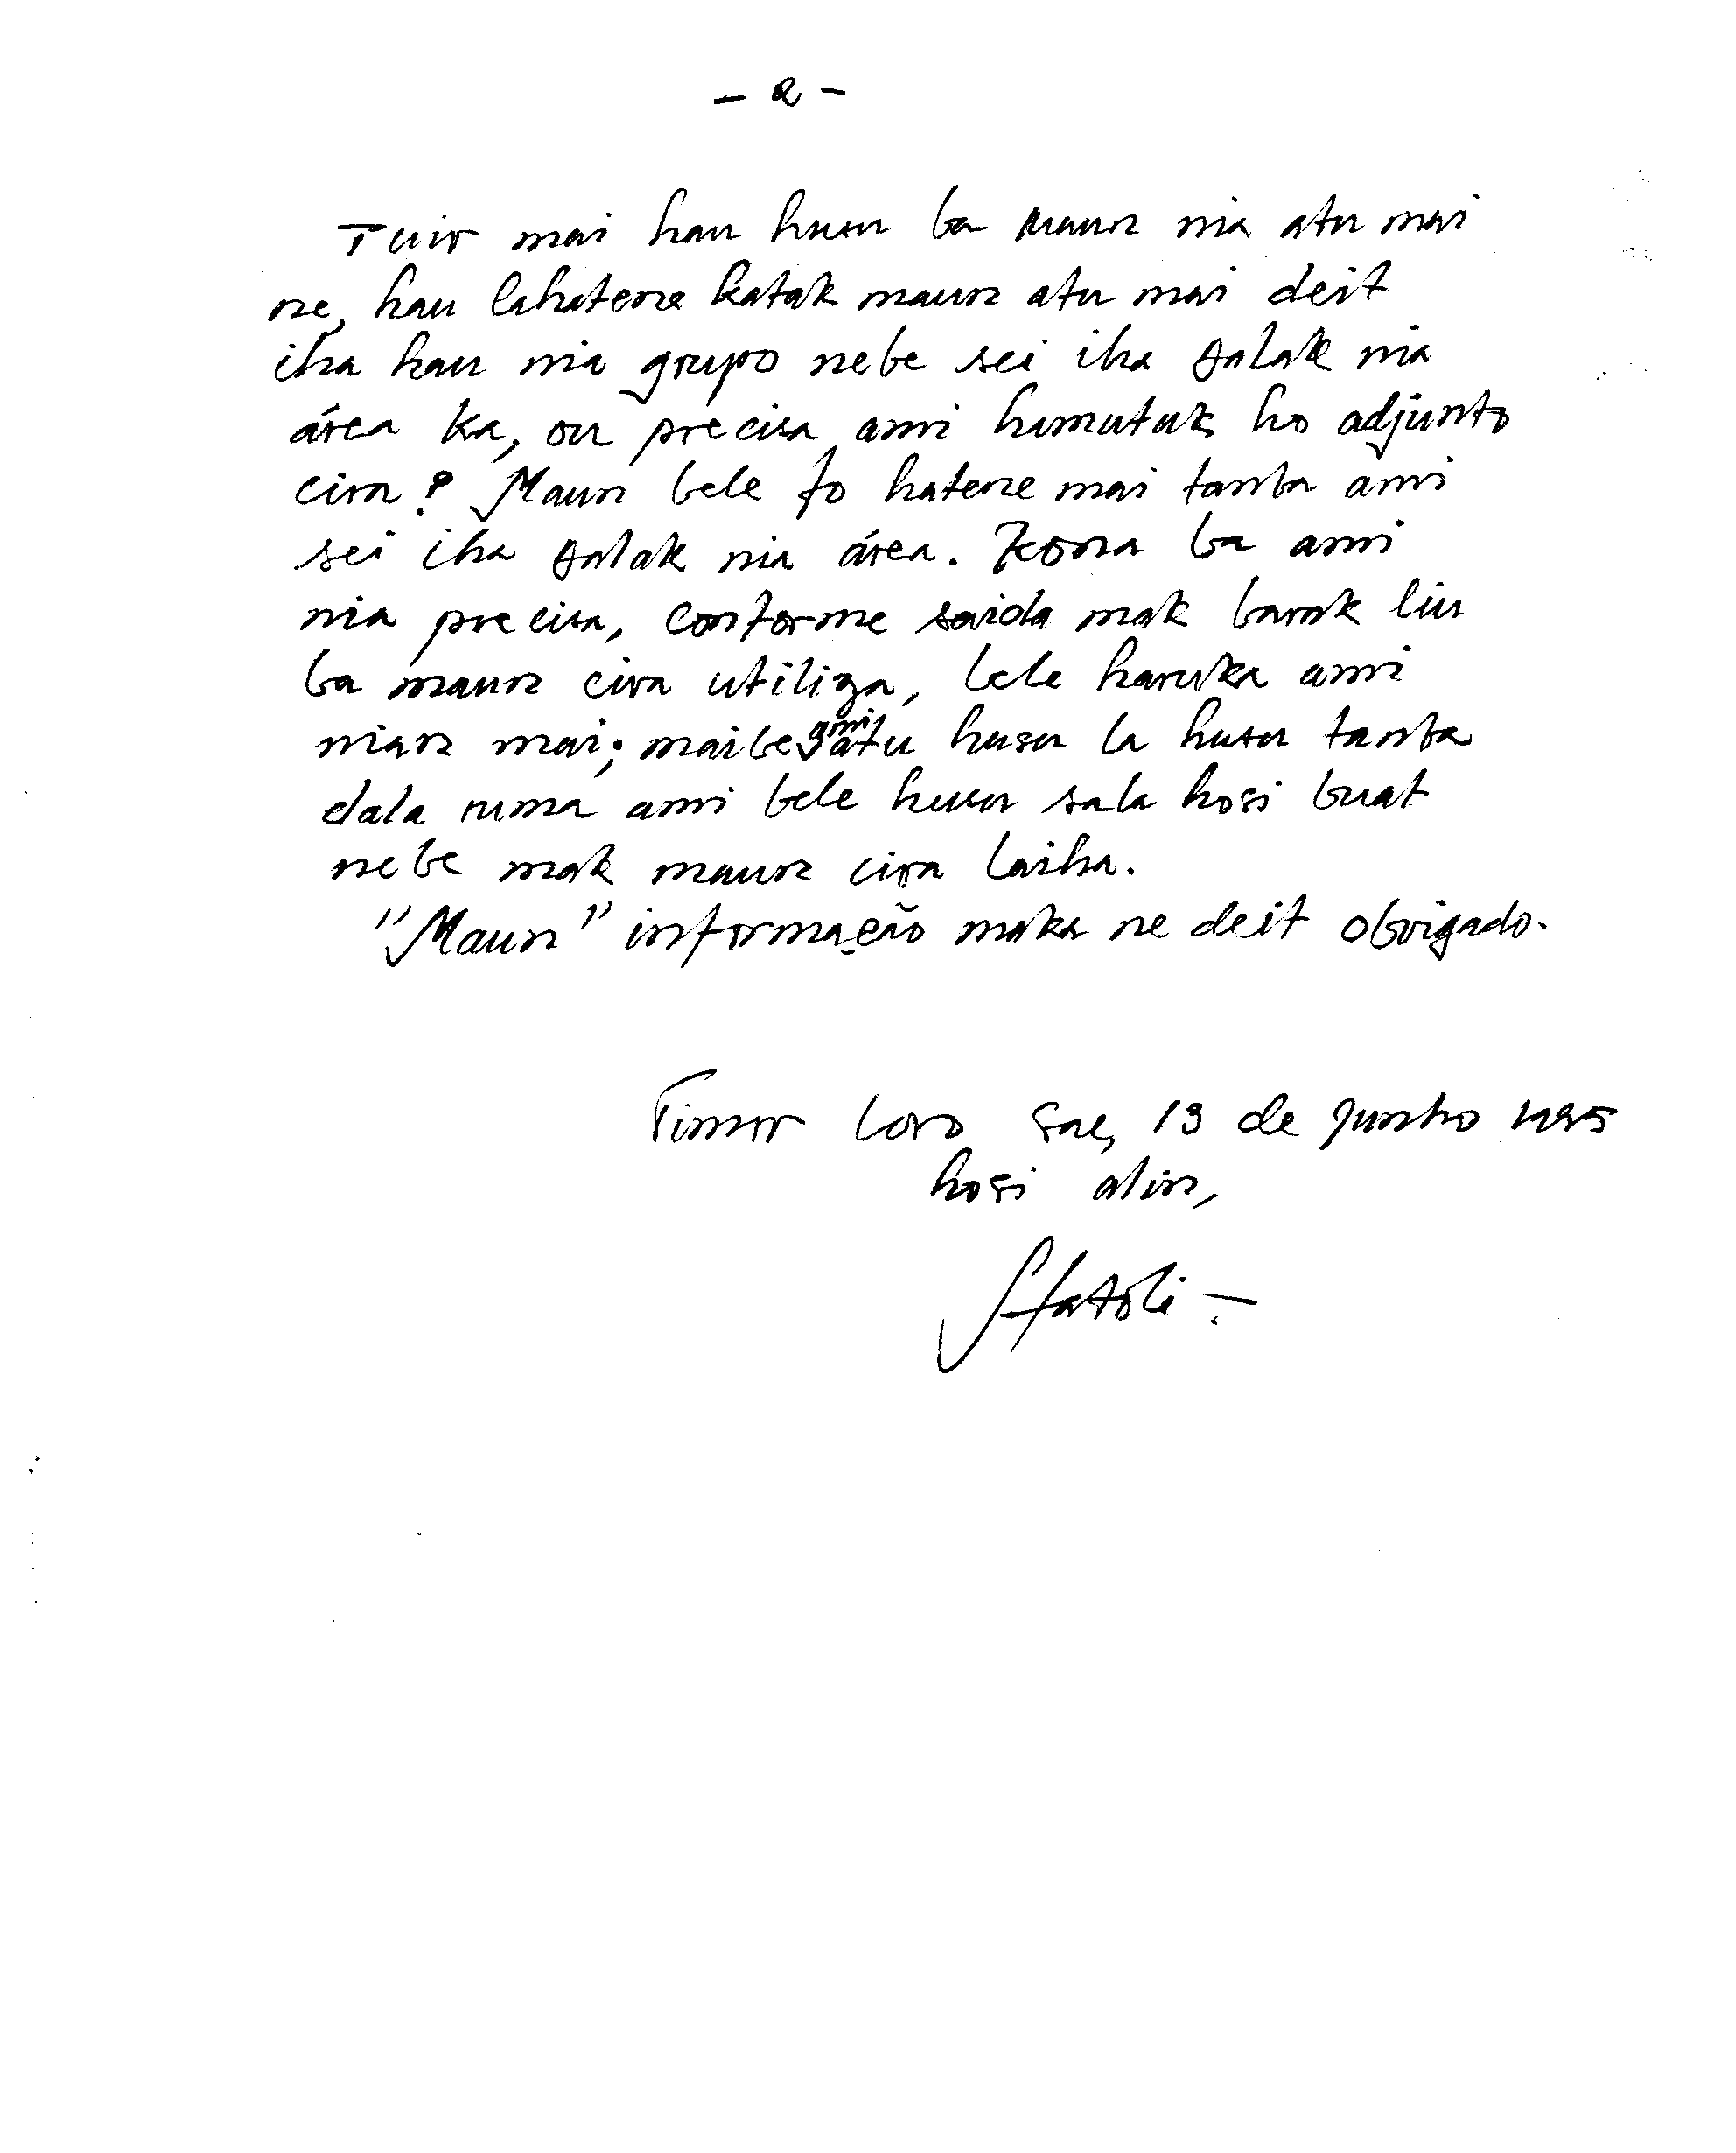 - 2 -
Tuir mai hau husu ba maun nia atu mai
ne, hau lahatene katak maun atu mai deit
iha hau nia grupo nebe sei iha falak nia
área ka, ou precisa ami hamutuk ho adjunto
cira? Maun bele fo hatene mai tanba ami
sei iha falak nia área. Kona ba ami
nia precisa, conforme saida mak barak liu
ba maun cira utiliza, bele haruka ami
nian mai; maibe ami atu husu la husu tanba
dala ruma ami bele husu sala hosi buat
nebe mak maun cira laiha.
"Maun" informação maka ne deit obrigado.
Timor Loro Sae, 13 de Junho 1995
hosi alin,